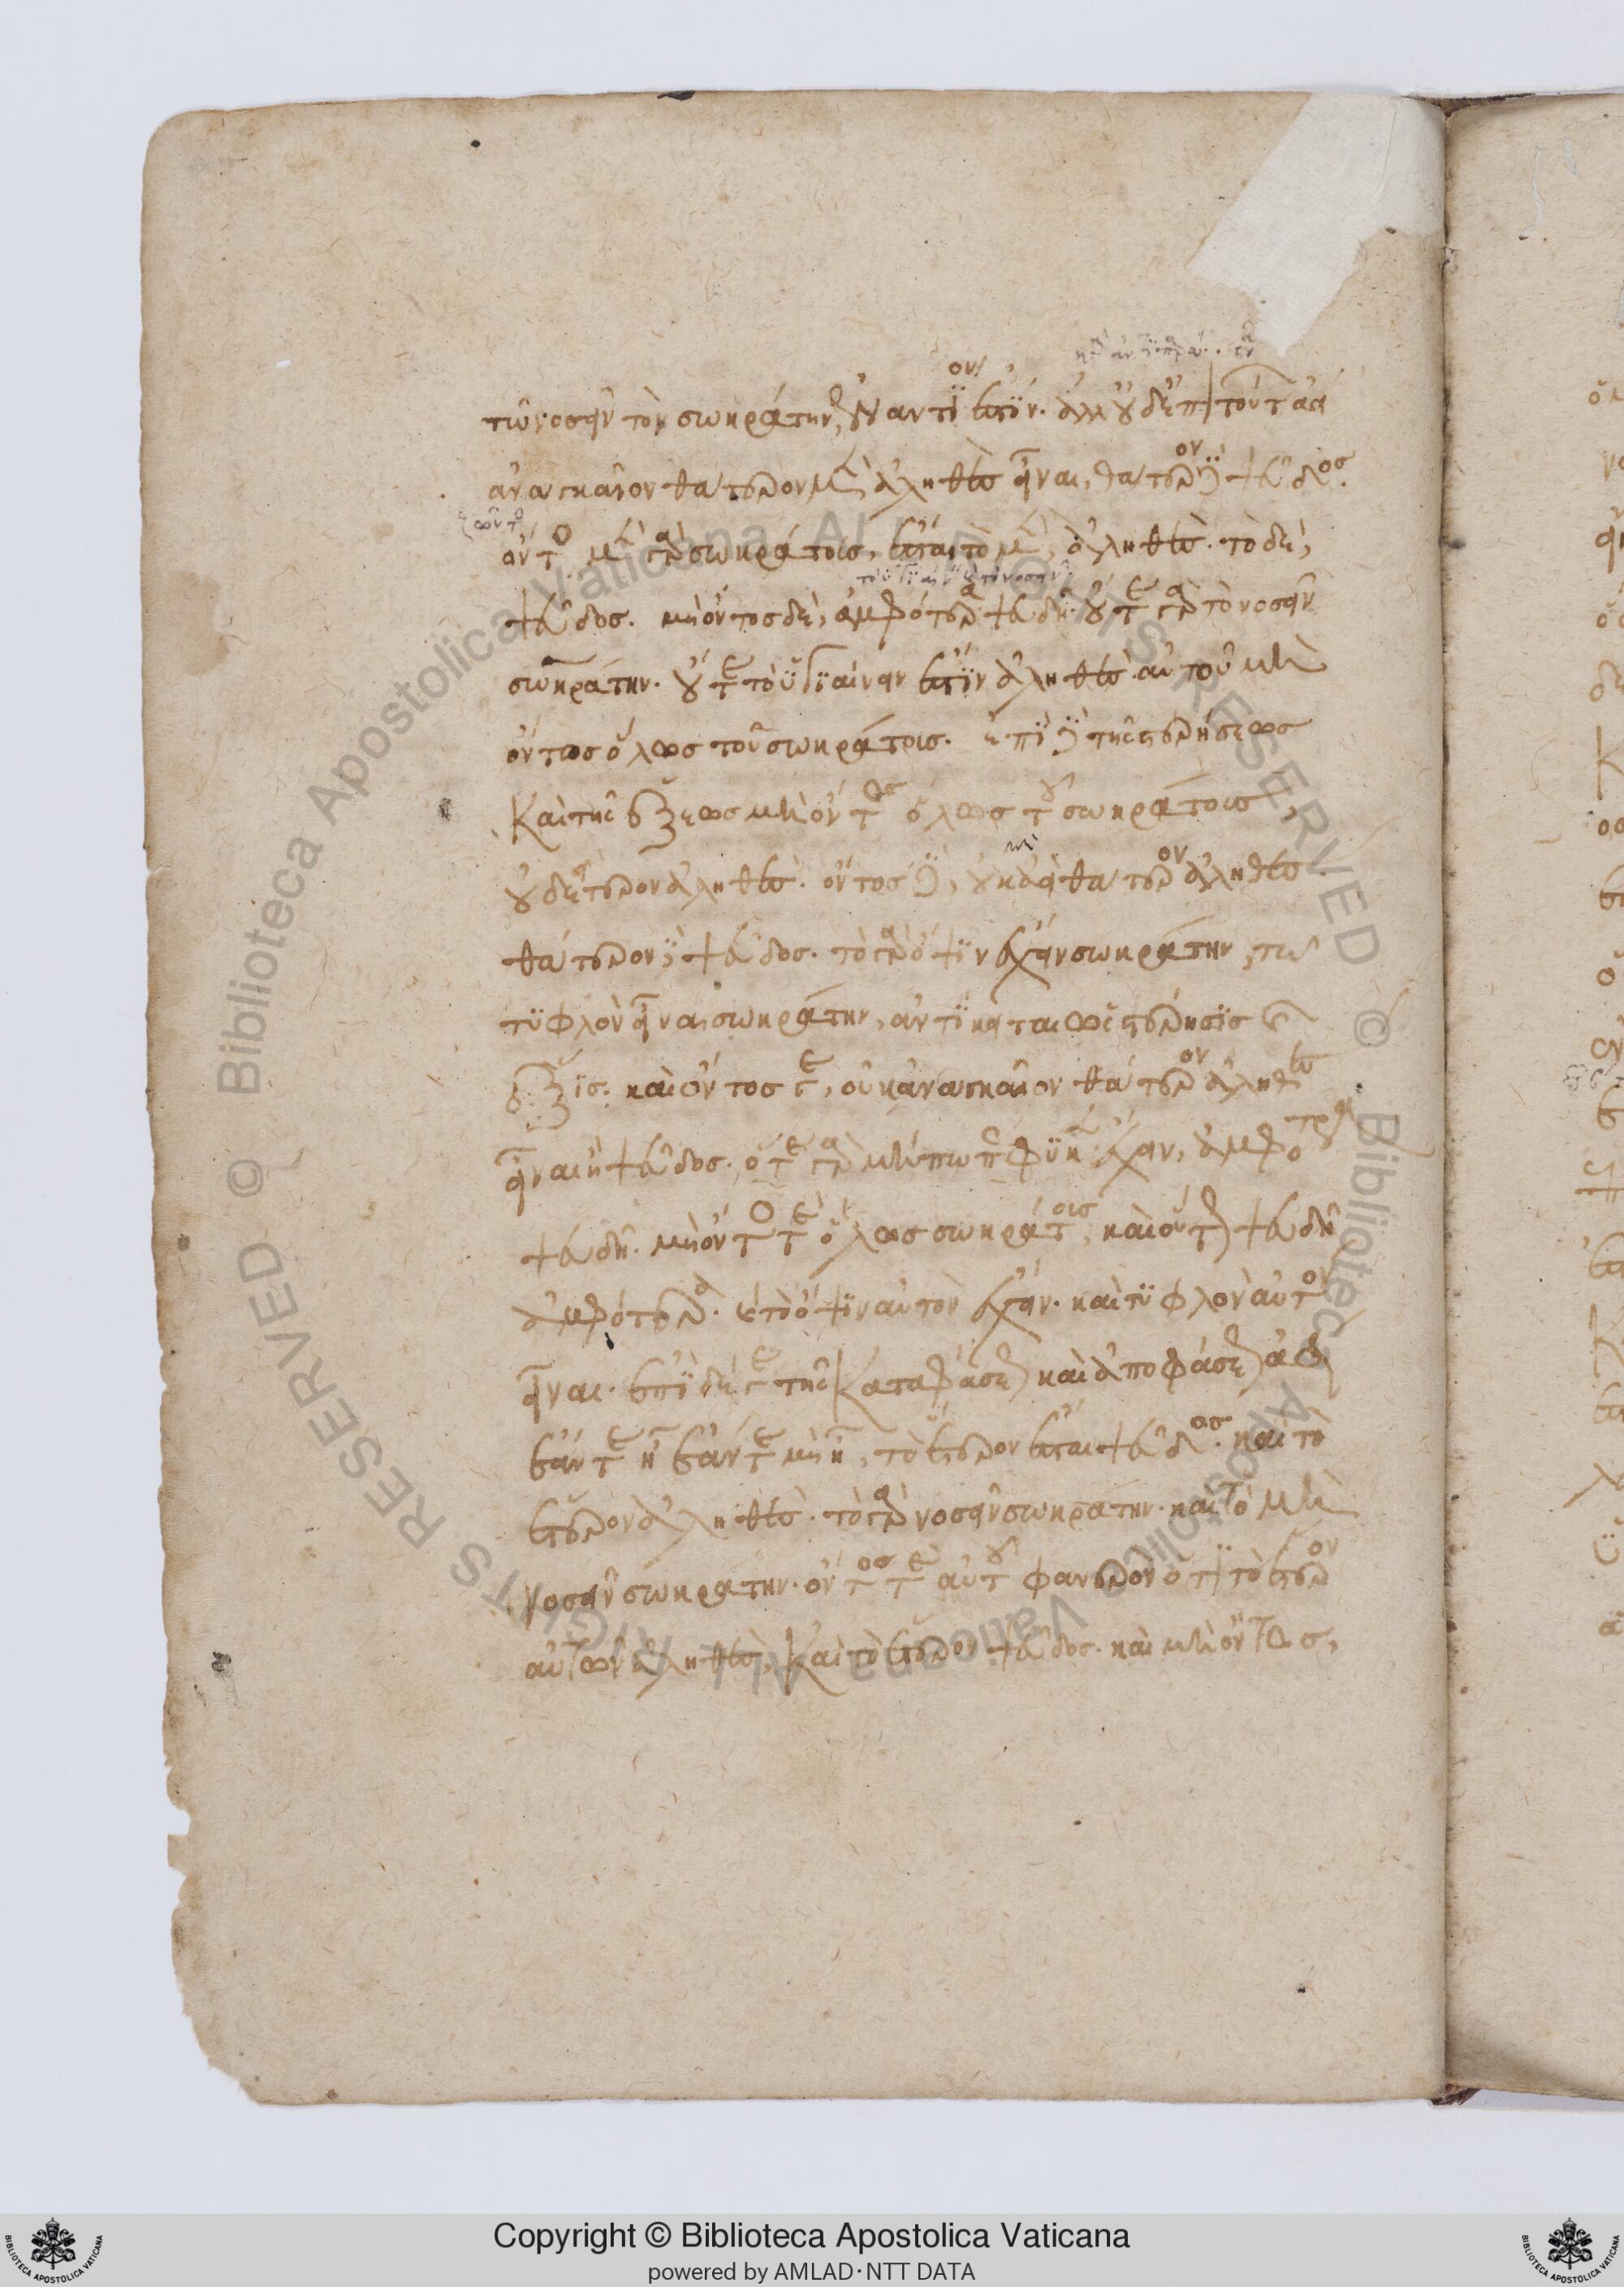 τῶ νοσεῖν τὸν σωκράτην, ἐναντίον ἐστιν. ἀλλ' οὐδ' ἐπὶ τούτων ἀεὶ
ἀναγκαῖον θάτερον μὲν ἀληθὲς εἶναι, θάτερον δὲ ψεῦδος.
ὄντος μὲν γὰρ σωκράτους, ἔσται τὸ μὲν, ἀληθὲς. τὸ δὲ,
ψεῦδος. μὴ ὄντος δὲ, ἀμφότερα ψευδῆ. οὔτε γὰρ τὸ νοσεῖν
σωκράτην. οὔτε τὸ ὑγιαίνειν ἐστὶν ἀληθὲς αὐτοῦ μὴ
ὄντος ὅλως τοῦ σωκράτους. ἐπὶ δὲ τῆς στερήσεως
καὶ τῆς ἕξεως μὴ ὄντος ὅλως τοῦ σωκράτους,
οὐδέτερον ἀληθὲς. ὄντος δὲ, οὐκ ἀεὶ θάτερον ἀληθὲς.
θάτερον δὲ ψεῦδος. τὸ γὰρ ὄψιν ἔχειν σωκράτην, τῶ
τυφλὸν εἶναι σωκράτην, ἀντίκειται ὡς στέρησις καὶ
ἕξις. καὶ ὄντος τε, οὐκ ἀναγκαῖον θάτερον ἀληθὲς
εἶναι ἢ ψεῦδος. ὅτε γὰρ μήπω πέφυκεν ἔχειν, ἀμφότερα
ψευδῆ. μὴ ὄντος τε ὅλως σωκράτους, καὶ οὕτω ψευδῆ
ἀμφότερα. καὶ τὸ ὄψιν αὐτὸν ἔχειν. καὶ τυφλὸν αὐτὸν
εἶναι. ἐπὶ δέ γε τῆς καταφάσεως καὶ ἀποφάσεως ἀεὶ
ἐάν τε ᾖ ἐάν τε μὴ ᾖ, τὸ ἕτερον ἔσται ψεῦδος. καὶ τὸ
ἕτερον ἀληθὲς. τὸ γὰρ νοσεῖν σωκράτην. καὶ τὸ μὴ
νοσεῖν σωκράτην. ὄντος τε αὐτοῦ φανερὸν ὅτι τὸ ἕτερον
αὐτῶν ἀληθὲς, καὶ τὸ ἕτερον ψεῦδος. καὶ μὴ ὄντος,
Copyright © Biblioteca Apostolica Vaticana
powered by AMLAD·NTT DATA